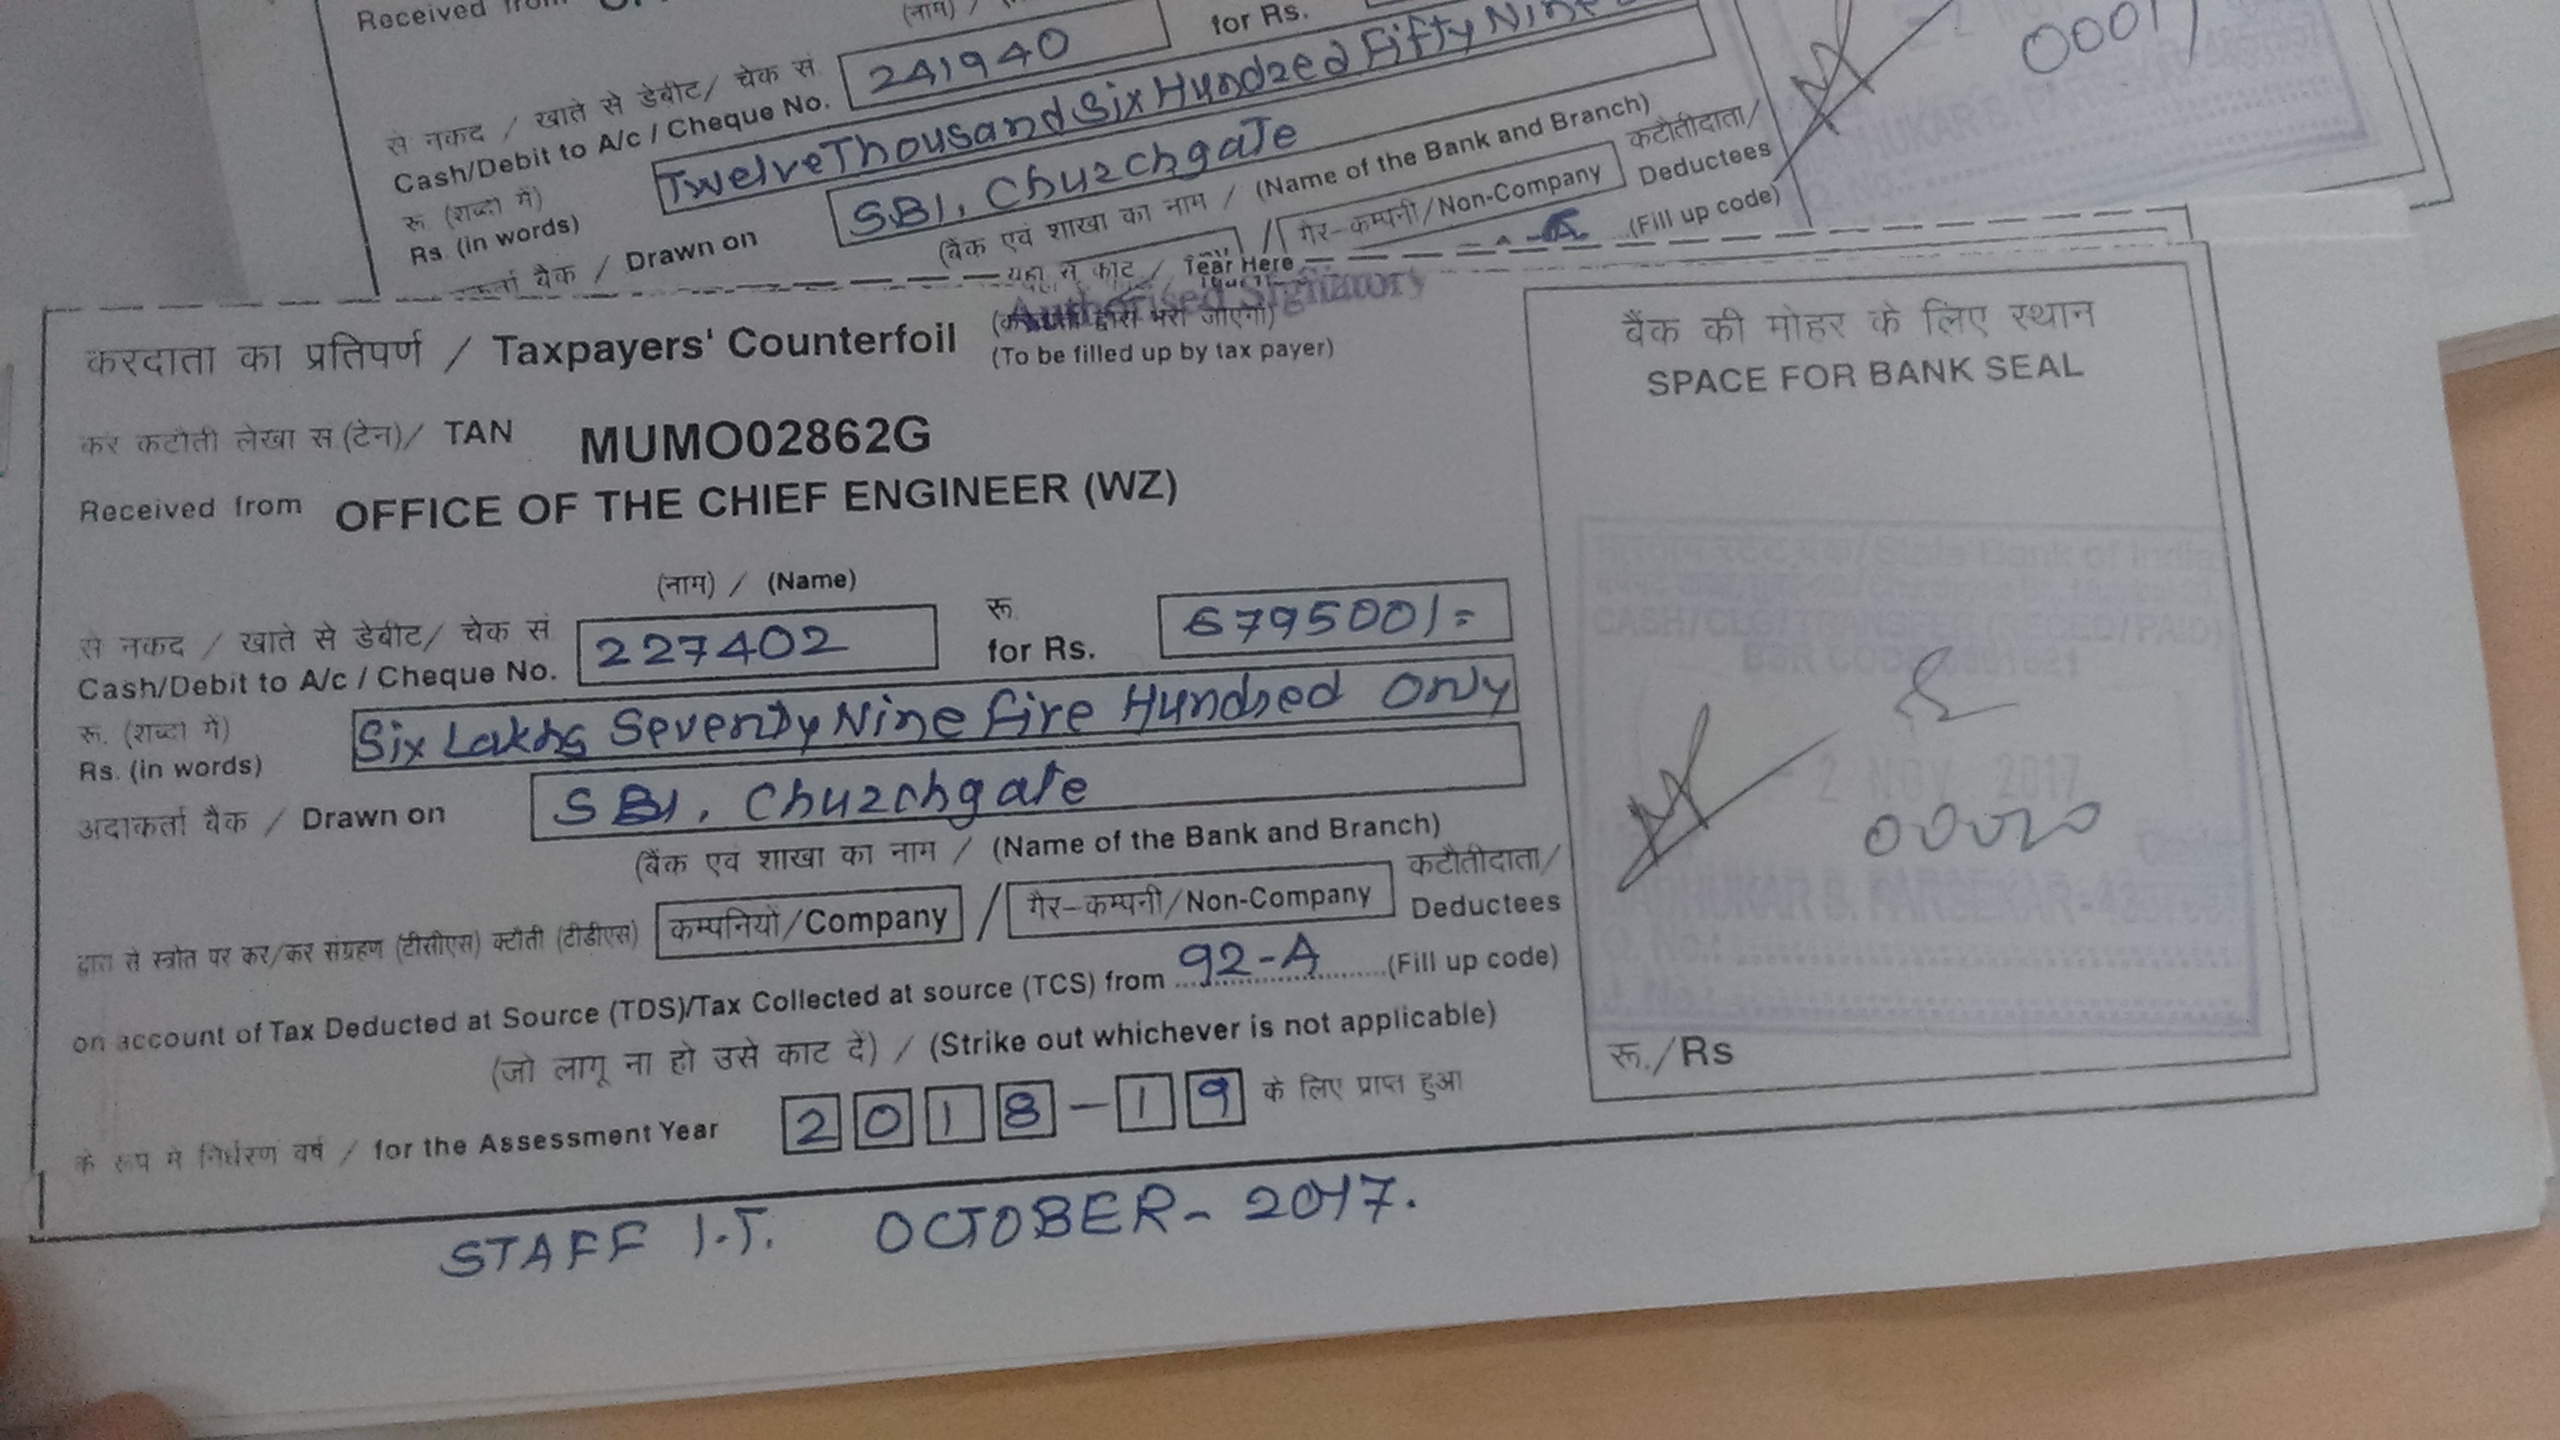 Received from
(नाम) /
for Rs.
से नकद / खाते से डेबीट/ चेक सं
Cash/Debit to A/c / Cheque No. 241940
00017
रू (शब्दों में)
Rs. (in words) Twelve Thousand Six Hundred Fifty Nine
बैंक / Drawn on SBI, Churchgate
(बैंक एवं शाखा का नाम / (Name of the Bank and Branch)
/ गैर-कम्पनी/Non-Company कटौतीदाता/ Deductees
(Fill up code)
यहां से काटे / Tear Here
Authorised Signatory
करदाता का प्रतिपर्ण / Taxpayers' Counterfoil (करदाता द्वारा भरा जाएगा)
(To be filled up by tax payer)
कर कटौती लेखा स.(टेन)/ TAN MUMO02862G
Received from OFFICE OF THE CHIEF ENGINEER (WZ)
(नाम) / (Name)
से नकद / खाते से डेबीट/ चेक सं रू
Cash/Debit to A/c / Cheque No. 227402 for Rs. 679500/=
रू. (शब्दों में)
Rs. (in words) Six Lakhs Seventy Nine Five Hundred Only
अदाकर्ता बैंक / Drawn on SBI, Churchgate
(बैंक एवं शाखा का नाम / (Name of the Bank and Branch)
द्वारा से स्त्रोत पर कर/कर संग्रहण (टीसीएस) कटौती (टीडीएस) कम्पनियों/Company / गैर-कम्पनी/Non-Company कटौतीदाता/ Deductees
on account of Tax Deducted at Source (TDS)/Tax Collected at source (TCS) from 92-A (Fill up code)
(जो लागू ना हो उसे काट दें) / (Strike out whichever is not applicable)
के रूप में निर्धरण वर्ष / for the Assessment Year 2018-19 के लिए प्राप्त हुआ
STAFF I.T. OCTOBER- 2017.
बैंक की मोहर के लिए स्थान
SPACE FOR BANK SEAL
State Bank of India
CASH/CLG/TRANSFER
BSR CODE
- 2 NOV 2017
00020
रू./Rs